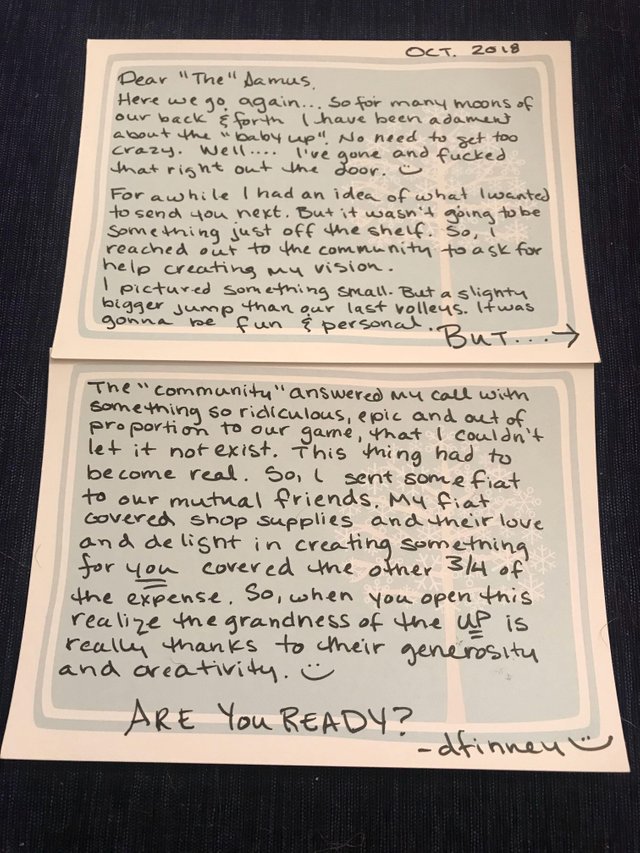 OCT. 2018
Dear "The" Damus,
Here we go again... So for many moons of
our back & forth I have been adament
about the "baby up". No need to get too
crazy. Well.... I've gone and fucked
that right out the door. :)
For awhile I had an idea of what I wanted
to send you next. But it wasn't going to be
something just off the shelf. So, I
reached out to the community to ask for
help creating my vision.
I pictured something small. But a slighty
bigger jump than our last volleys. It was
gonna be fun & personal. BUT...→
The "community" answered my call with
something so ridiculous, epic and out of
proportion to our game, that I couldn't
let it not exist. This thing had to
become real. So, I sent some fiat
to our mutual friends. My fiat
covered shop supplies and their love
and delight in creating something
for you covered the other 3/4 of
the expense. So, when you open this
realize the grandness of the UP is
really thanks to their generosity
and creativity. :)
ARE YOU READY?
-dfinney :)